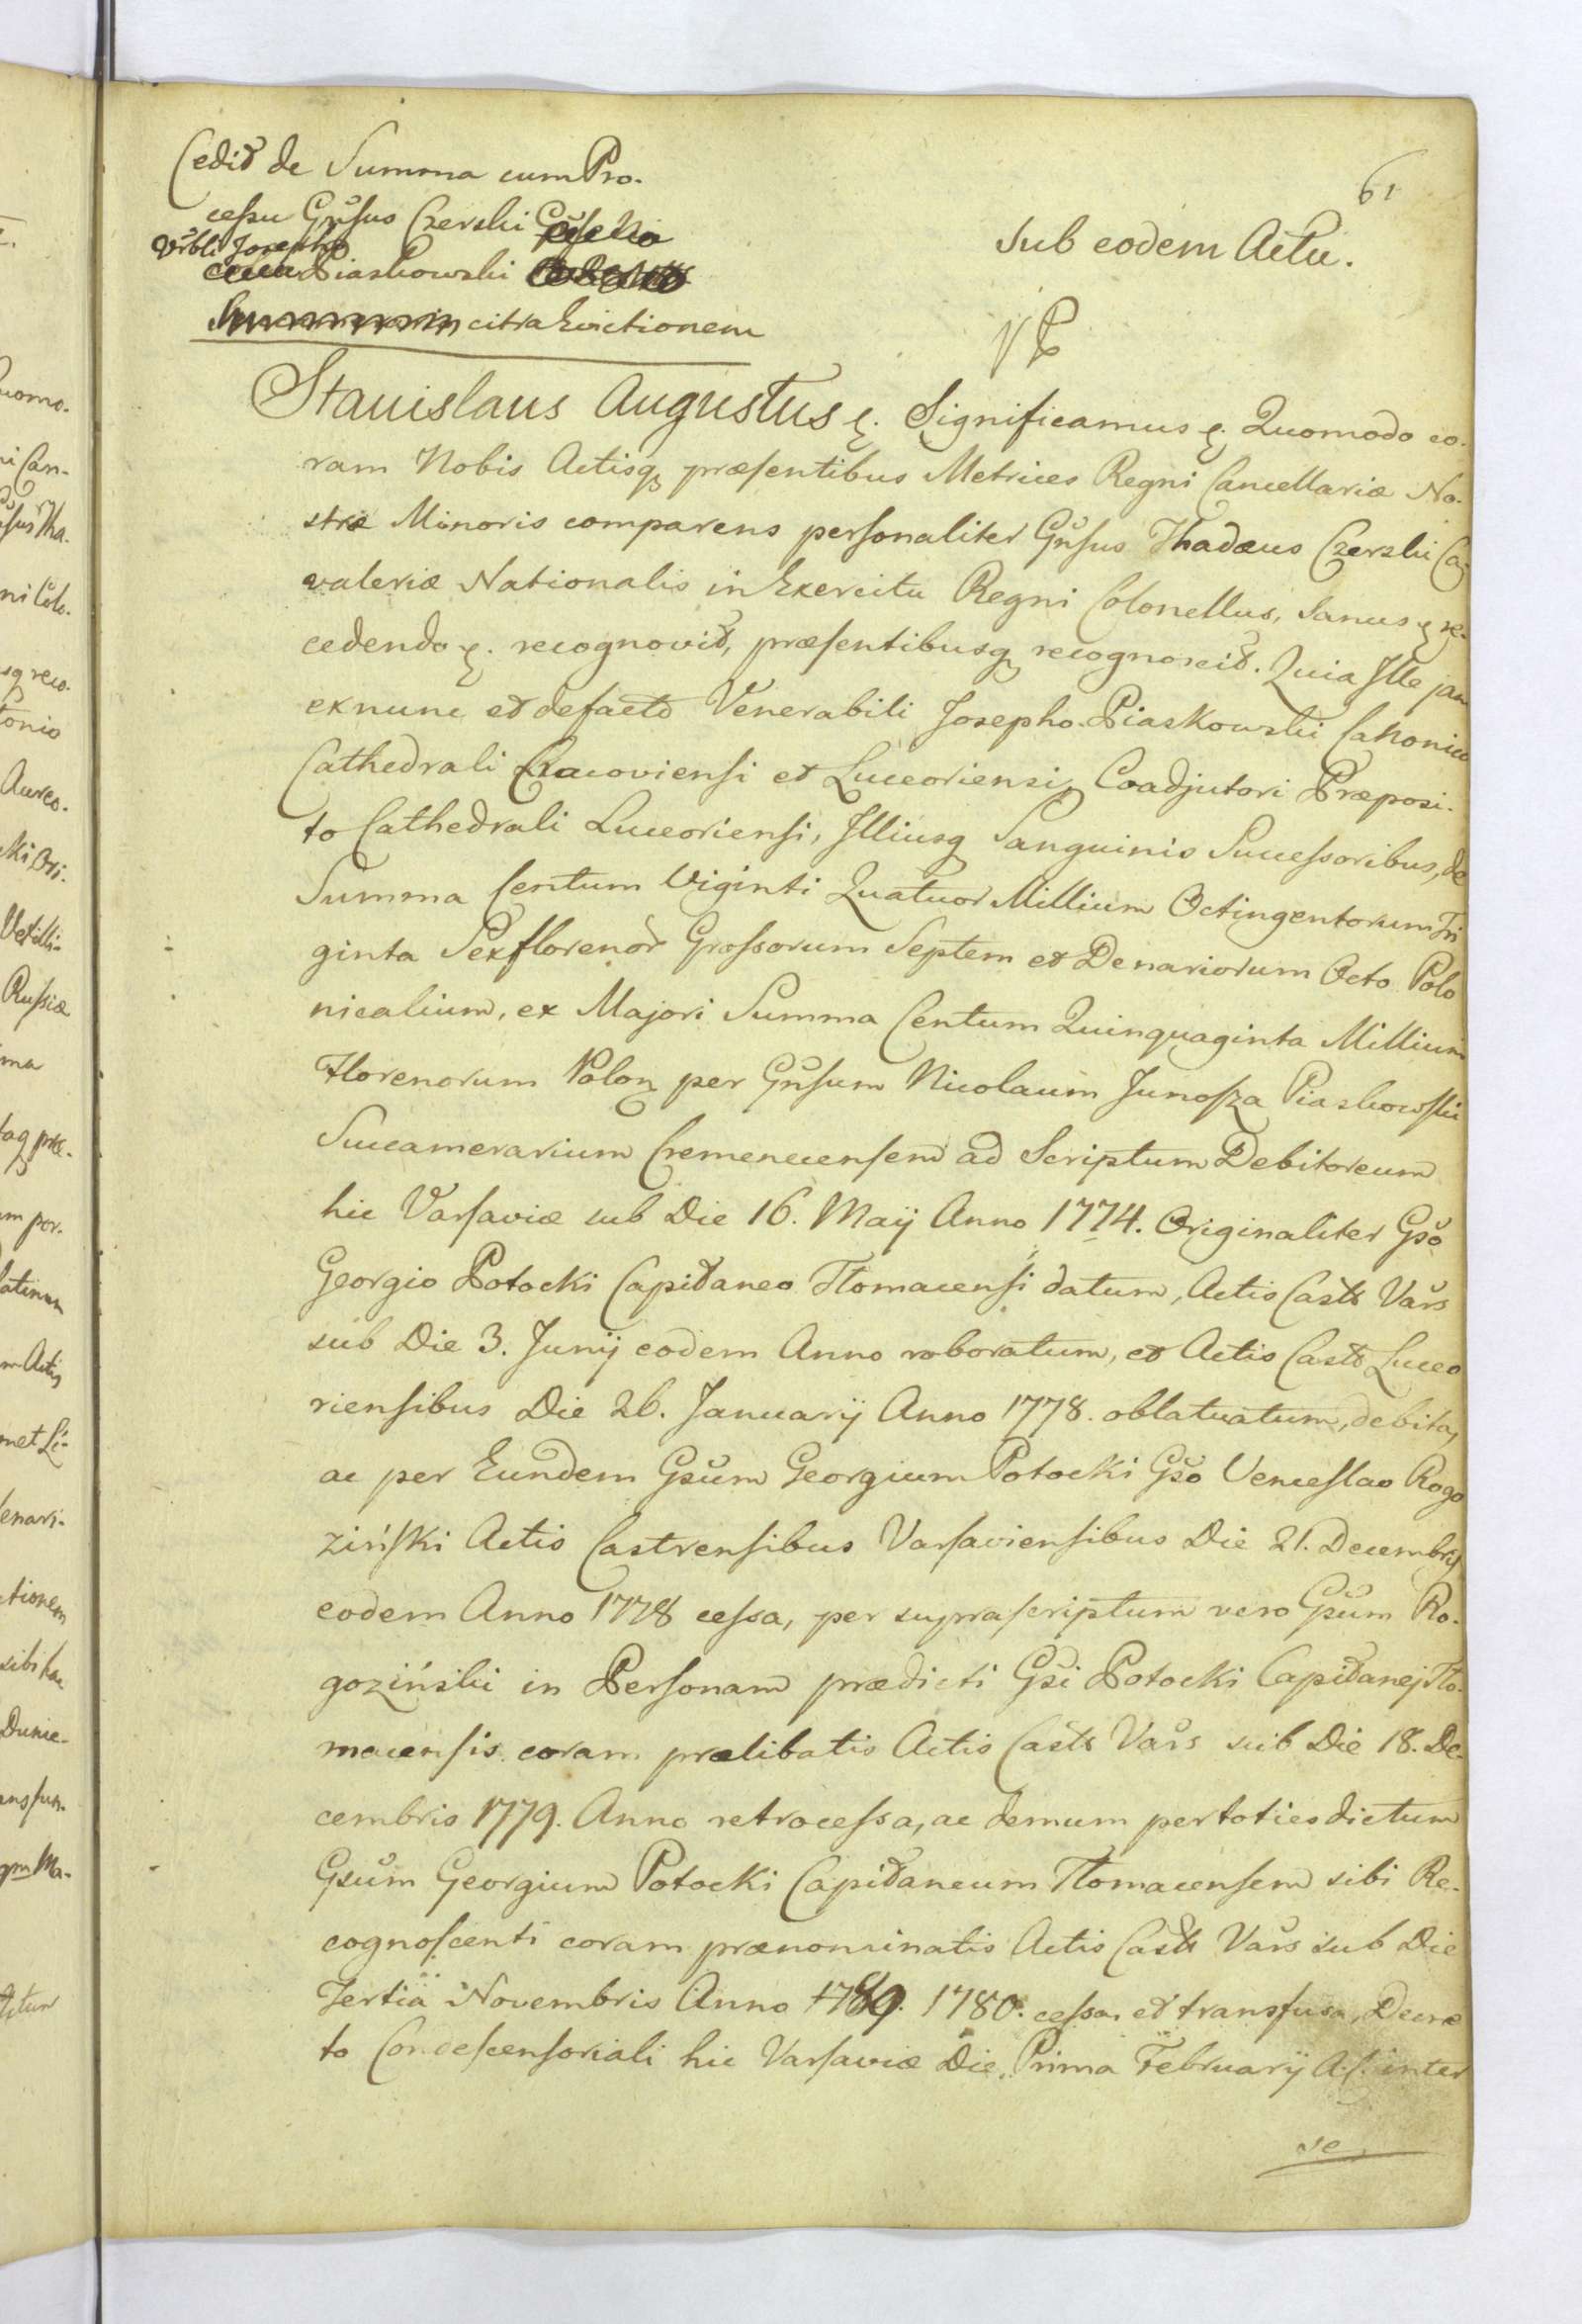 61
Cedit de Summa cum Pro-
cessu Gnsus Czerski
Vrbli Josepho
Piaskowski
citra Evictionem
Sub eodem Actu.
Stanislaus Augustus &. Significamus &. Quomodo co-
ram Nobis Actisq præsentibus Metrices Regni Cancellariæ No-
stræ Minoris comparens personaliter Gnsus Thadæus Czerski Ca-
valeriæ Nationalis in Exercitu Regni Colonellus, Sanus & re-
cedendo &. recognovit, præsentibusq recognoscit. Quia Ille jam
exnunc et defacto Venerabili Josepho Piaskowski Canonico
Cathedrali Cracoviensi et Luceoriensi, Coadjutori Præposi-
to Cathedrali Luceoriensi, Illiusq Sanguinis Successoribus, de
Summa Centum Viginti Quatuor Millium Octingentorum Tri
ginta Sex florenor Grossorum Septem et Denariorum Octo Polo
nicalium, ex Majori Summa Centum Quinquaginta Millium
Florenorum Polon per Gnsum Nicolaum Junosza Piaskowski
Succamerarium Cremenecensem ad Scriptum Debitoreum
hic Varsaviæ sub Die 16. Maij Anno 1774. Originaliter Gso
Georgio Potocki Capitaneo Tłomacensi datum, Actis Casts Vars
sub Die 3. Junij eodem Anno roboratum, et Actis Casts Luceo
riensibus Die 26. Januarij Anno 1778. oblatuatum, debita,
ac per Eundem Gsum Georgium Potocki Gso Venceslao Rogo
ziński Actis Castrensibus Varsaviensibus Die 21. Decembris
eodem Anno 1778 cessa, per suprascriptum vero Gsum Ro-
goziński in Personam prædicti Gsi Potocki Capitanej Tło-
macensis coram prælibatis Actis Casts Vars sub Die 18. De-
cembris 1779. Anno retrocessa, ac demum per toties dictum
Gsum Georgium Potocki Capitaneum Tłomacensem sibi Re-
cognoscenti coram prænominatis Actis Casts Vars sub Die
Tertia Novembris Anno 1780. cessa et transfusa, Decre
to Condescensoriali hic Varsaviæ Die Prima Februarij A. s. inter
se